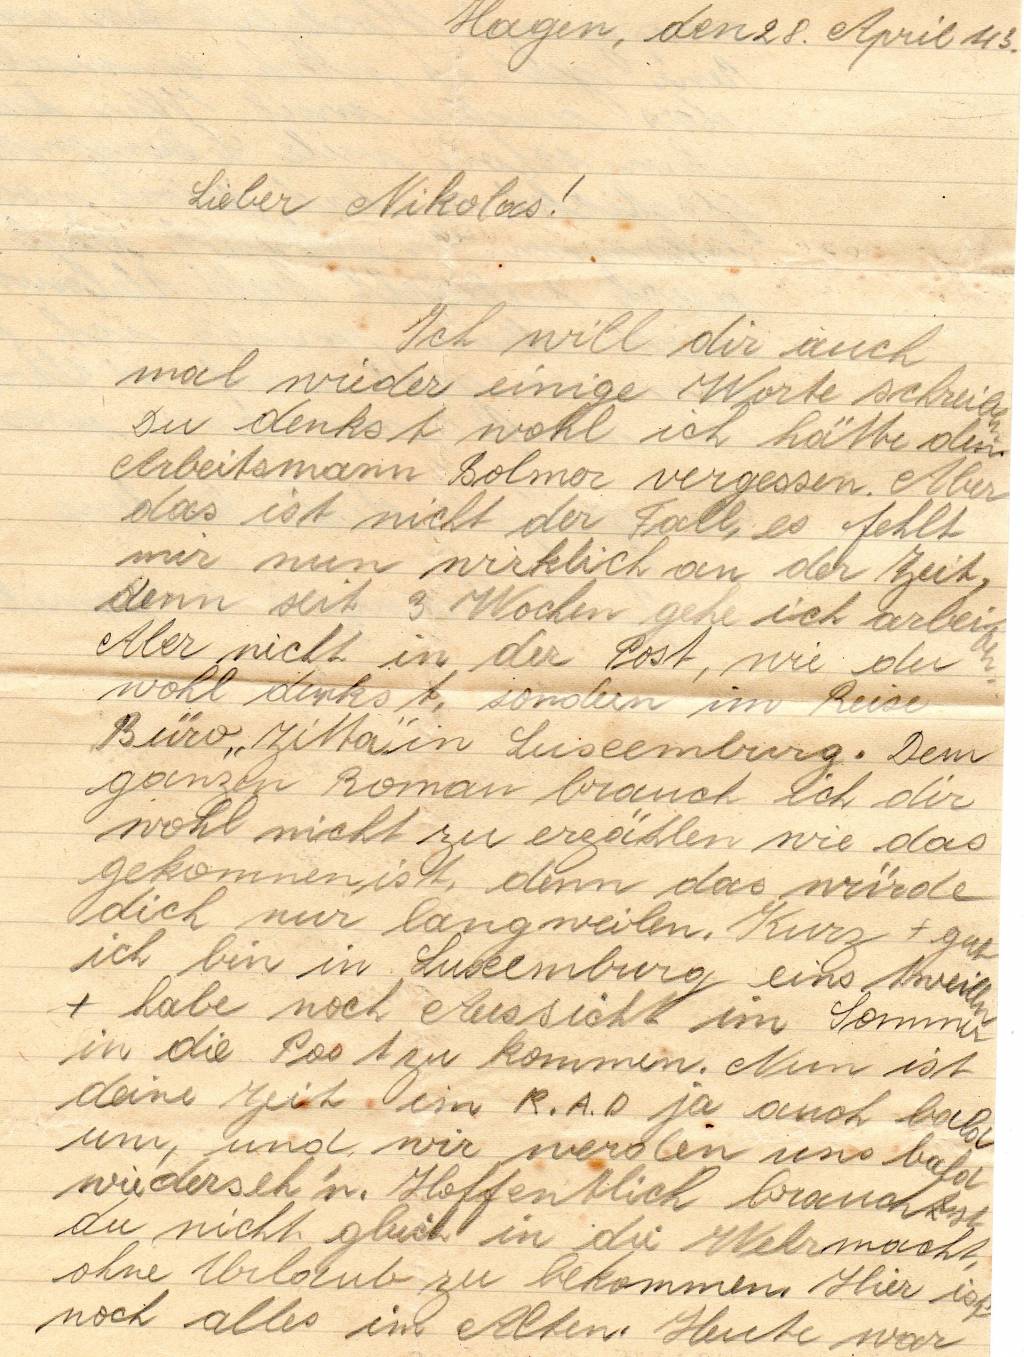 Hagen, den 28. April 43.
Lieber Nikolas!
Ich will dir auch
mal wieder einige Worte schreiben.
Du denkst wohl ich hätte den
Arbeitsmann Bolmor vergessen. Aber
das ist nicht der Fall, es fehlt
mir nun wirklich an der Zeit,
denn seit 3 Wochen gehe ich arbeiten.
Aber nicht in der Post, wie du
wohl denkst, sondern im Reise
Büro „Zitta" in Luxemburg. Dem
ganzen Roman brauch ich dir
wohl nicht zu erzählen wie das
gekommen ist, denn das würde
dich nur langweilen. Kurz + gut
ich bin in Luxemburg einstweilen
+ habe noch Aussicht im Sommer
in die Post zu kommen. Nun ist
deine Zeit im R.A.D ja auch bald
um, und wir werden uns bald
wiederseh'n. Hoffentlich brauchst
du nicht gleich in die Wehrmacht,
ohne Urlaub zu bekommen. Hier ist
noch alles im Alten. Heute war